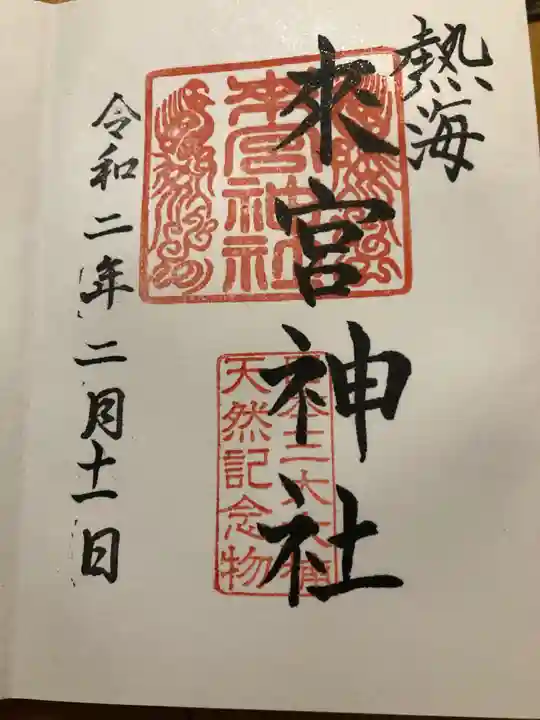 熱海
來宮神社
来宮神社
日本三大大楠
天然記念物
令和二年二月十一日